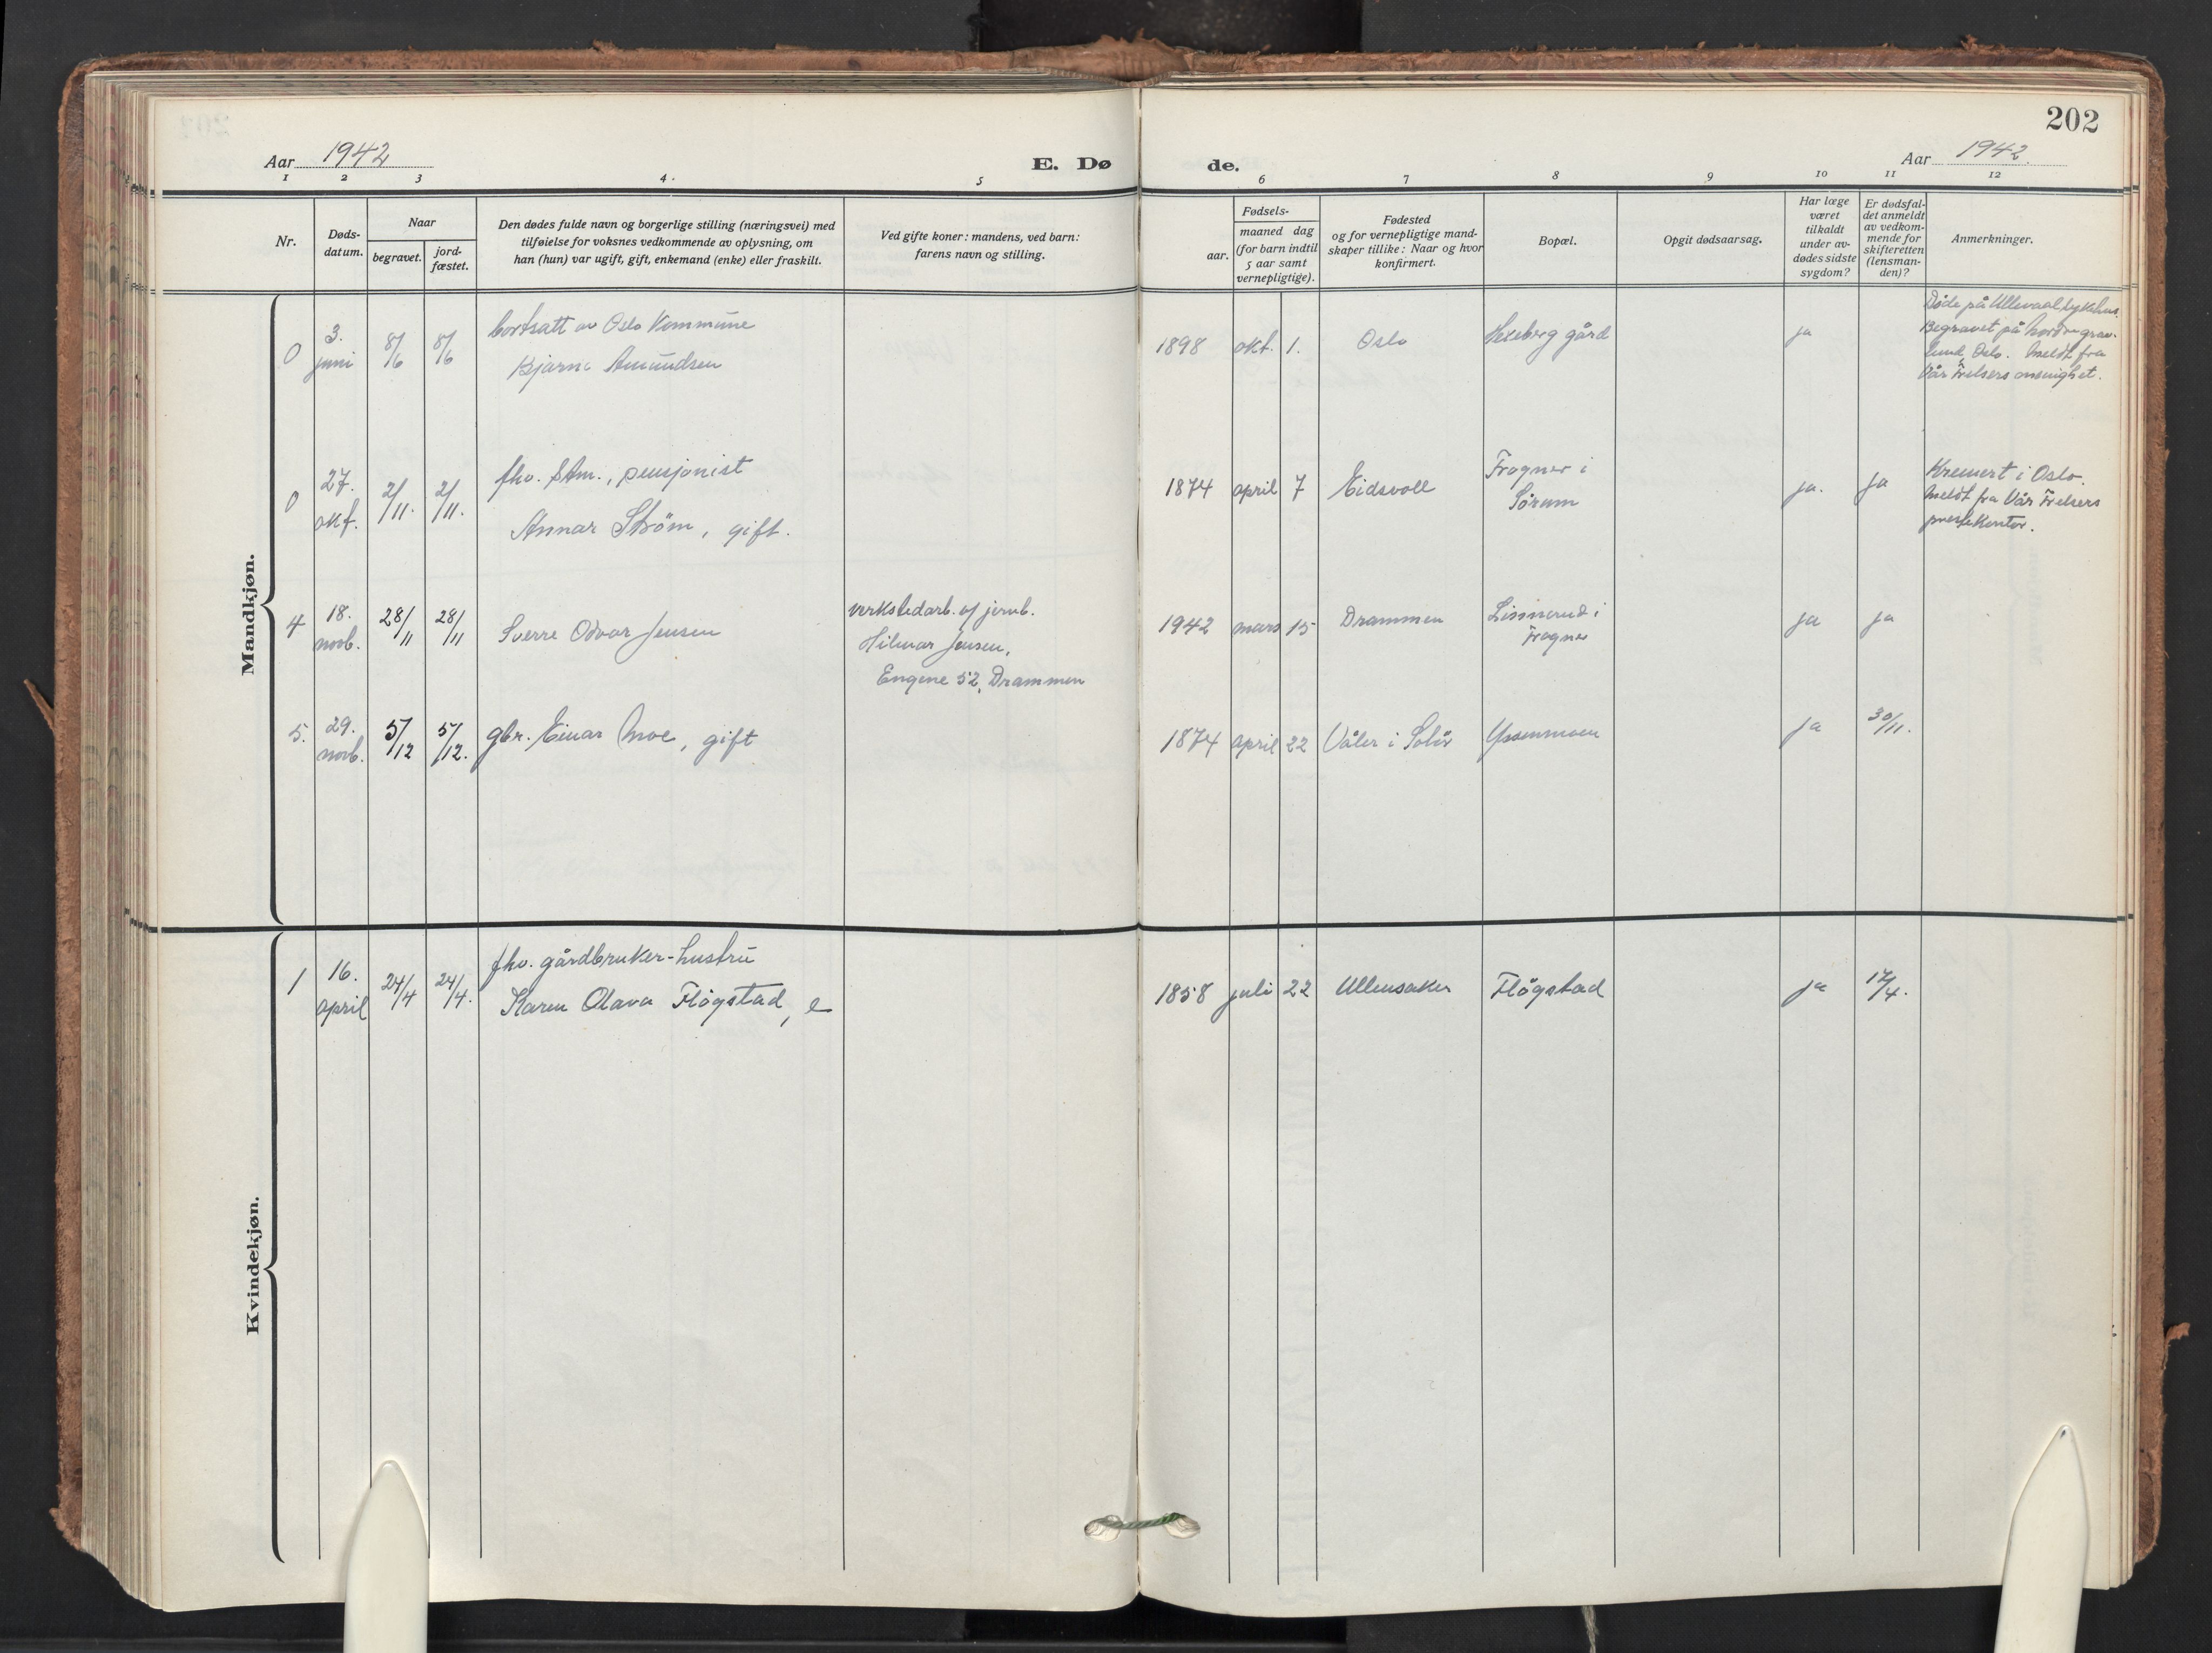 202
Aar 1942 E. Dø de. Aar 1942.
1 2 3 4. 5 6 7 8 9 10 11 12
Nr.
Døds-
datum.
Naar
begravet.
jord-
fæstet.
Den dødes fulde navn og borgerlige stilling (næringsvei) med
tilføielse for voksnes vedkommende av oplysning, om
han (hun) var ugift, gift, enkemand (enke) eller fraskilt.
Ved gifte koner: mandens, ved barn:
farens navn og stilling.
aar.
Fødsels-
maaned dag
(for barn indtil
5 aar samt
vernepligtige).
Fødested
og for vernepligtige mand-
skaper tillike: Naar og hvor
konfirmert.
Bopæl.
Opgit dødsaarsag.
Har læge
været
tilkaldt
under av-
dødes sidste
sygdom?
Er dødsfal-
det anmeldt
av vedkom-
mende for
skifteretten
(lensman-
den)?
Anmerkninger.
Mandkjøn.
0
3.
juni
8/6
8/6
bortsatt av Oslo Kommune
Bjarne Amundsen
1898 okt. 1. Oslo
Hexeberg gård
ja
Døde på Ullevaal sykehus.
Begravet på Nordre grav-
lund, Oslo. Meldt fra
Vår Frelsers menighet.
0
27.
okt.
2/11.
2/11.
fhv. , pensjonist
Annar Strøm, gift.
1874 april 7 Eidsvoll
Frogner i
Sørum
ja.
ja
Kremert i Oslo.
Meldt fra Vår Frelsers
prestekontor.
4
18.
novb.
28/11
28/11
Sverre Odvar Jensen
verkstedarb. v/ jernb.
Hilmar Jensen,
Engene 52, Drammen
1942 mars 15 Drammen
Lisnerud i
Frogner
ja
ja
5.
29.
novb.
5/12
5/12.
gbr. Einar Moe, gift
1874 april 22 Våler i Solør
Yssenmoen
ja
30/11.
Kvindekjøn.
1
16.
april
24/4
24/4.
fhv. gårdbruker-hustru
Karen Olava Fløgstad, e
1858 juli 22 Ullensaker
Fløgstad
ja
17/4.